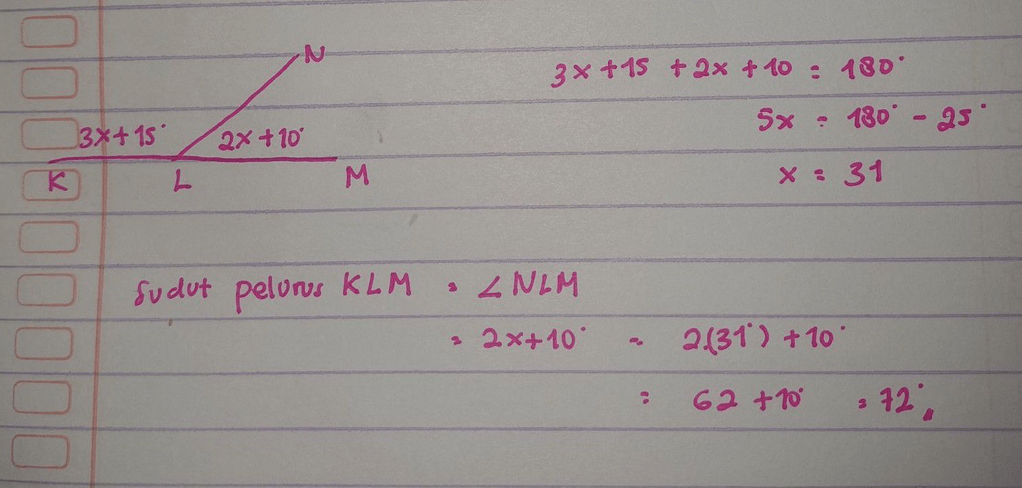 N
3x+15° 2x+10°
K L M
3x+15 + 2x+10 = 180°
5x = 180° - 25°
x = 31
Sudut pelurus KLM = ∠NLM
= 2x+10° = 2(31°)+10°
= 62+10° = 72°.